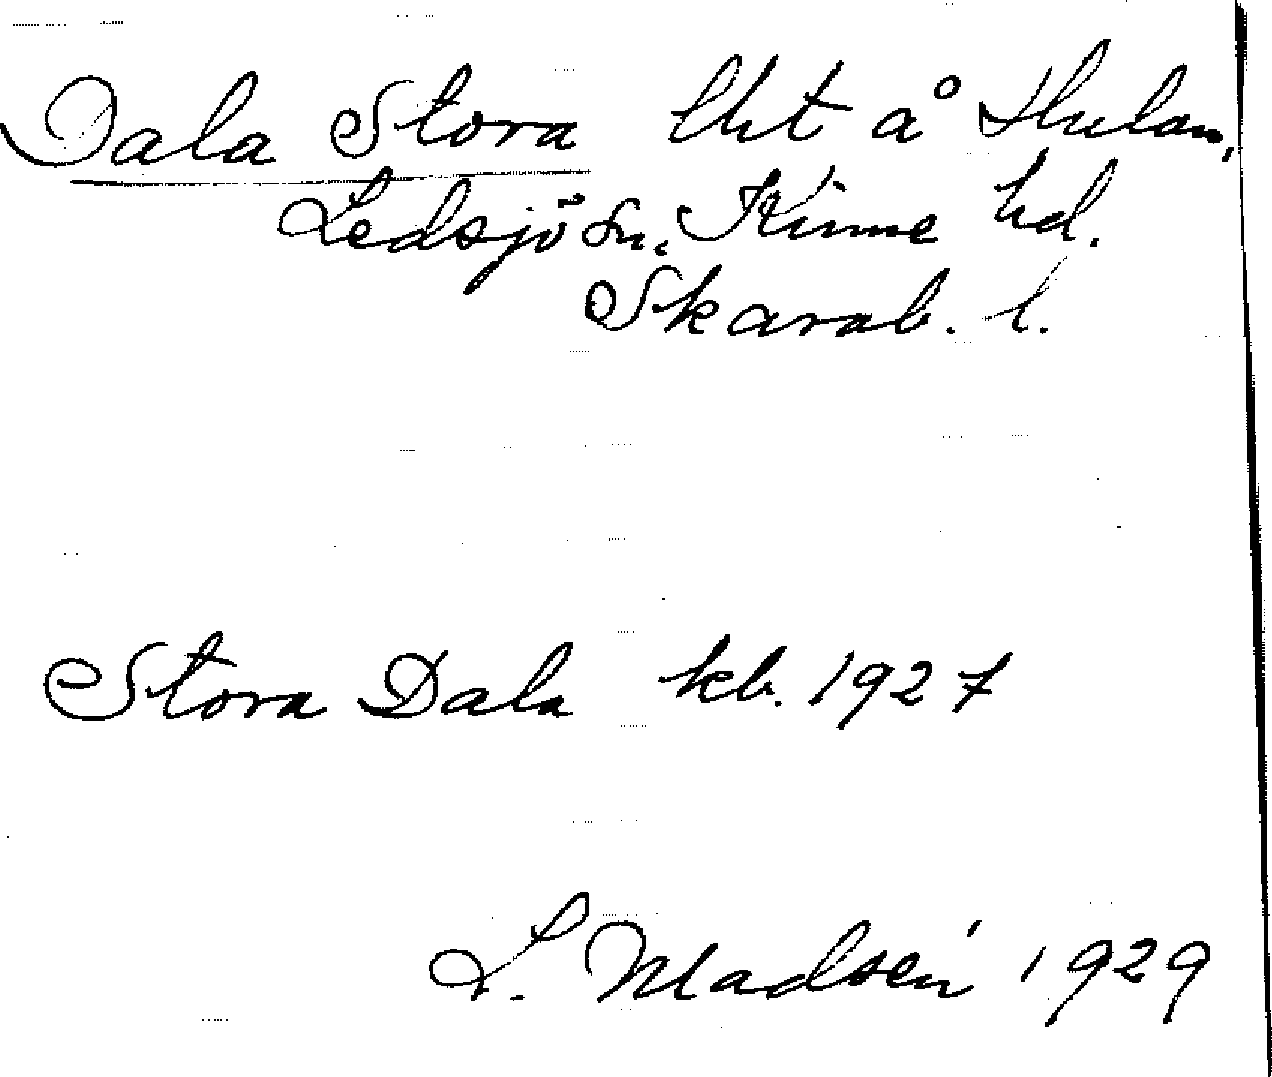 Dala Stora lht å Hulan,
Ledsjö sn, Kinne hd.
Skarab. l.
Stora Dala kb. 1927
L. Madsén 1929